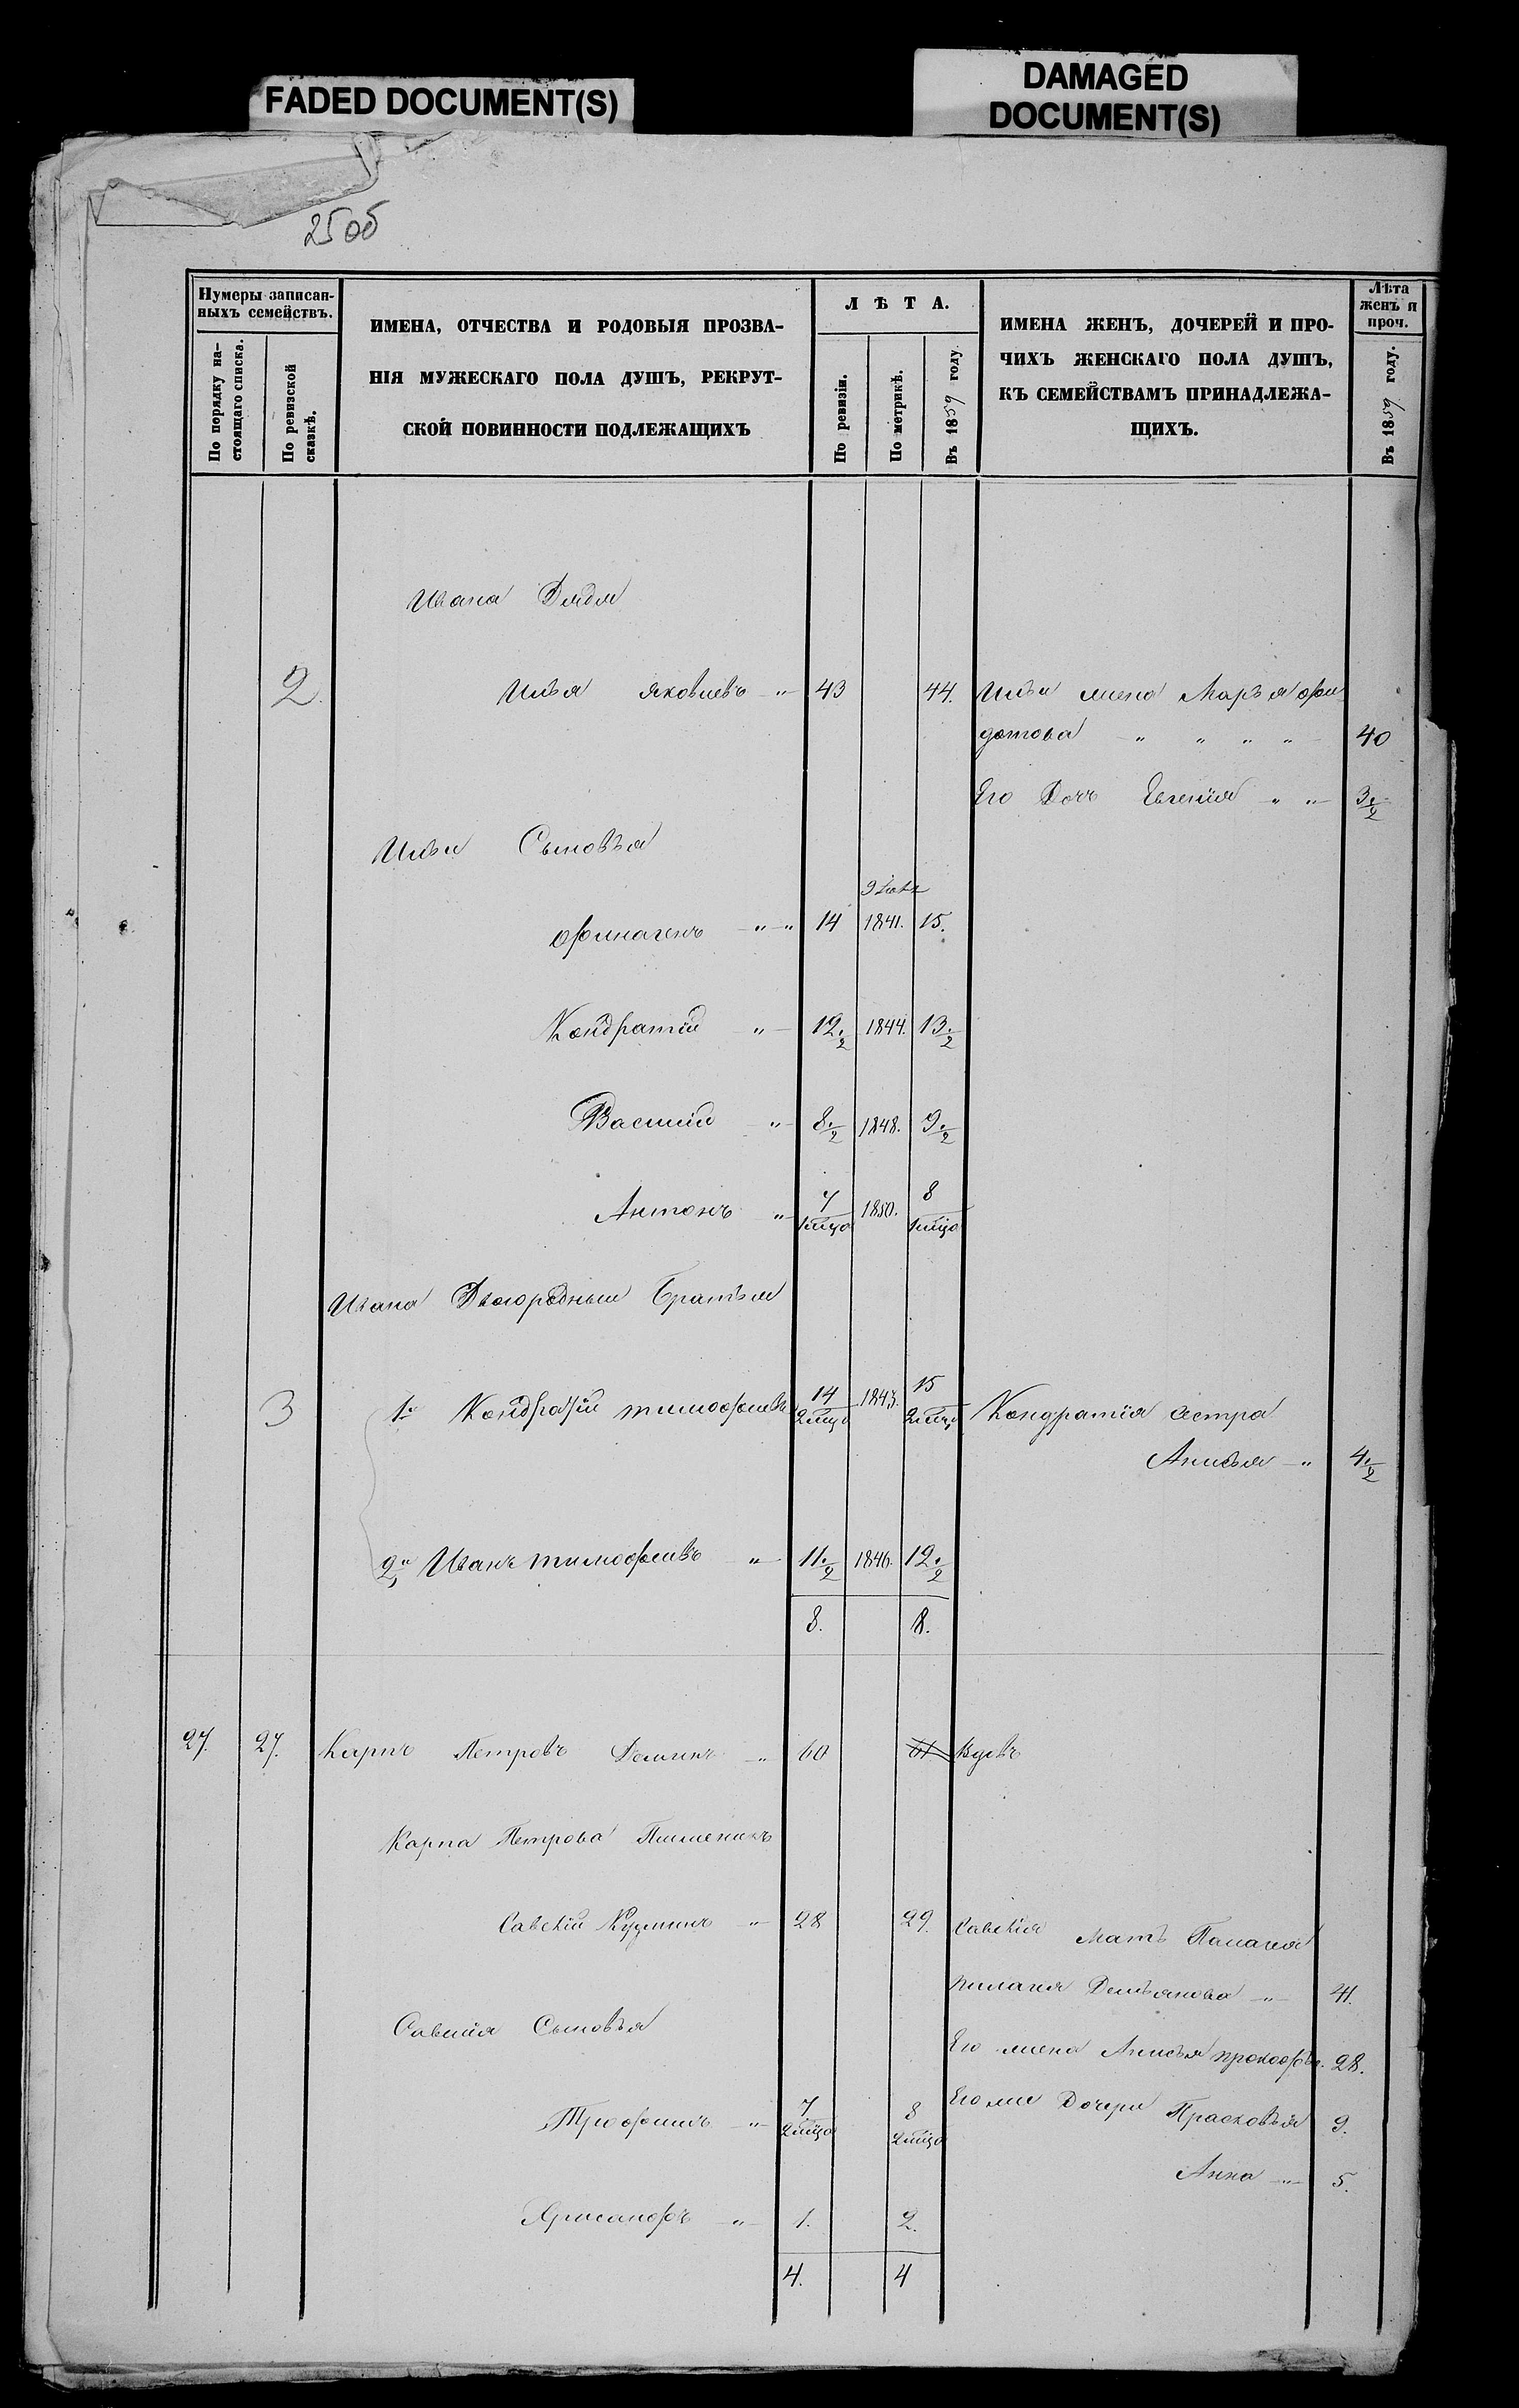 FADED DOCUMENT(S)
DAMAGED
DOCUMENT(S)
25об
Нумеры записан-
ныхъ семействъ.
По порядку на-
стоящаго списка.
По ревизской
сказкѣ.
ИМЕНА, ОТЧЕСТВА И РОДОВЫЯ ПРОЗВА-
НІЯ МУЖЕСКАГО ПОЛА ДУШЪ, РЕКРУТ-
СКОЙ ПОВИННОСТИ ПОДЛЕЖАЩИХЪ
ЛѢТА.
По ревизіи.
По метрикѣ.
Въ 1859 году
ИМЕНА ЖЕНЪ, ДОЧЕРЕЙ И ПРО-
ЧИХЪ ЖЕНСКАГО ПОЛА ДУШЪ,
КЪ СЕМЕЙСТВАМЪ ПРИНАДЛЕЖА-
ЩИХЪ.
Лѣта
женъ и
проч.
Въ 1859 году.
Ивана Дядя
2 Илья Яковлевъ „ 43 44. Ильи жена Марья Фи
дотова „ „ „ „ 40
Его Дочь Евгенія „ „ 3 ½
Ильи Сыновья
Финогенъ „ „ 14 1841. 15.
Кондратій „ 12 ½ 1844. 13 ½
Василій „ 8 ½ 1848. 9 ½
Антонъ „ 7 1мцо 1850. 8 1мцо
Ивана Двоюродныи Братья
3 1й Кондратій Тимофеевъ 14 2мцо 1843. 15 2мцо Кондратія сестра
Анисья „ 4 ½
2й Иванъ Тимофеевъ „ 11 ½ 1846. 12 ½
8. 8.
27. 27. Карпъ Петровъ Деминъ „ 60 61 Вдовъ
Карпа Петрова Племеникъ
Савелій Кузминъ „ 28 29. Савелія Мать Палагея
Пилагия Демьянова „ 41.
Савелія Сыновья
Его жена Анисья Прокофьв. 28.
Его же Дочери Прасковья 9.
Трофимъ „ 7 2мцо 8 2мцо
Анна „ 5.
Хрисанфъ „ 1. 2.
4. 4